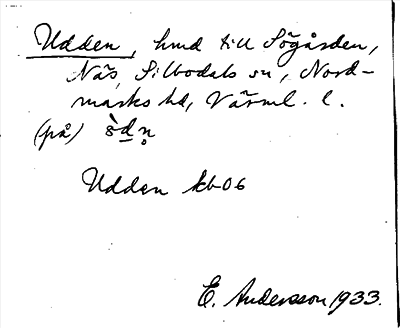 Udden, hmd till Sögården,
Näs, Silbodals sn, Nord-
marks hd, Värml. l.
(på) ò̈dn̥
Udden kb06
E. Andersson 1933.